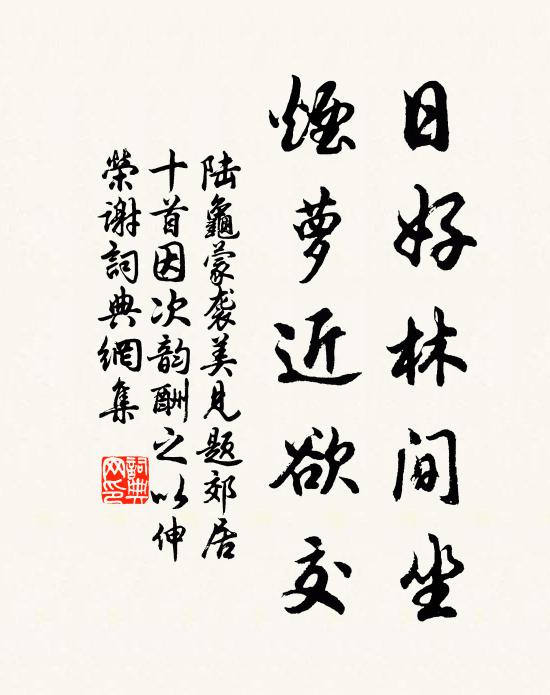 日好林间坐
煙萝近欲交
陆龜蒙袭美见题郊居
十首因次韵酬之以伸
榮谢詞典網集
詞典
网印